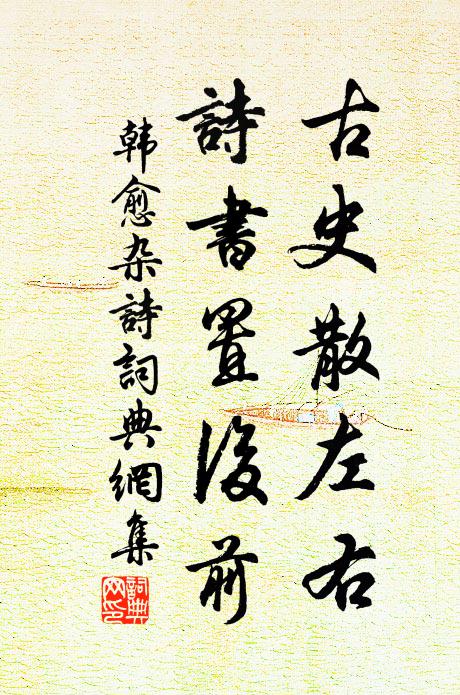 古史散左右
詩書置後前
韩愈杂詩詞典網集
詞典网印